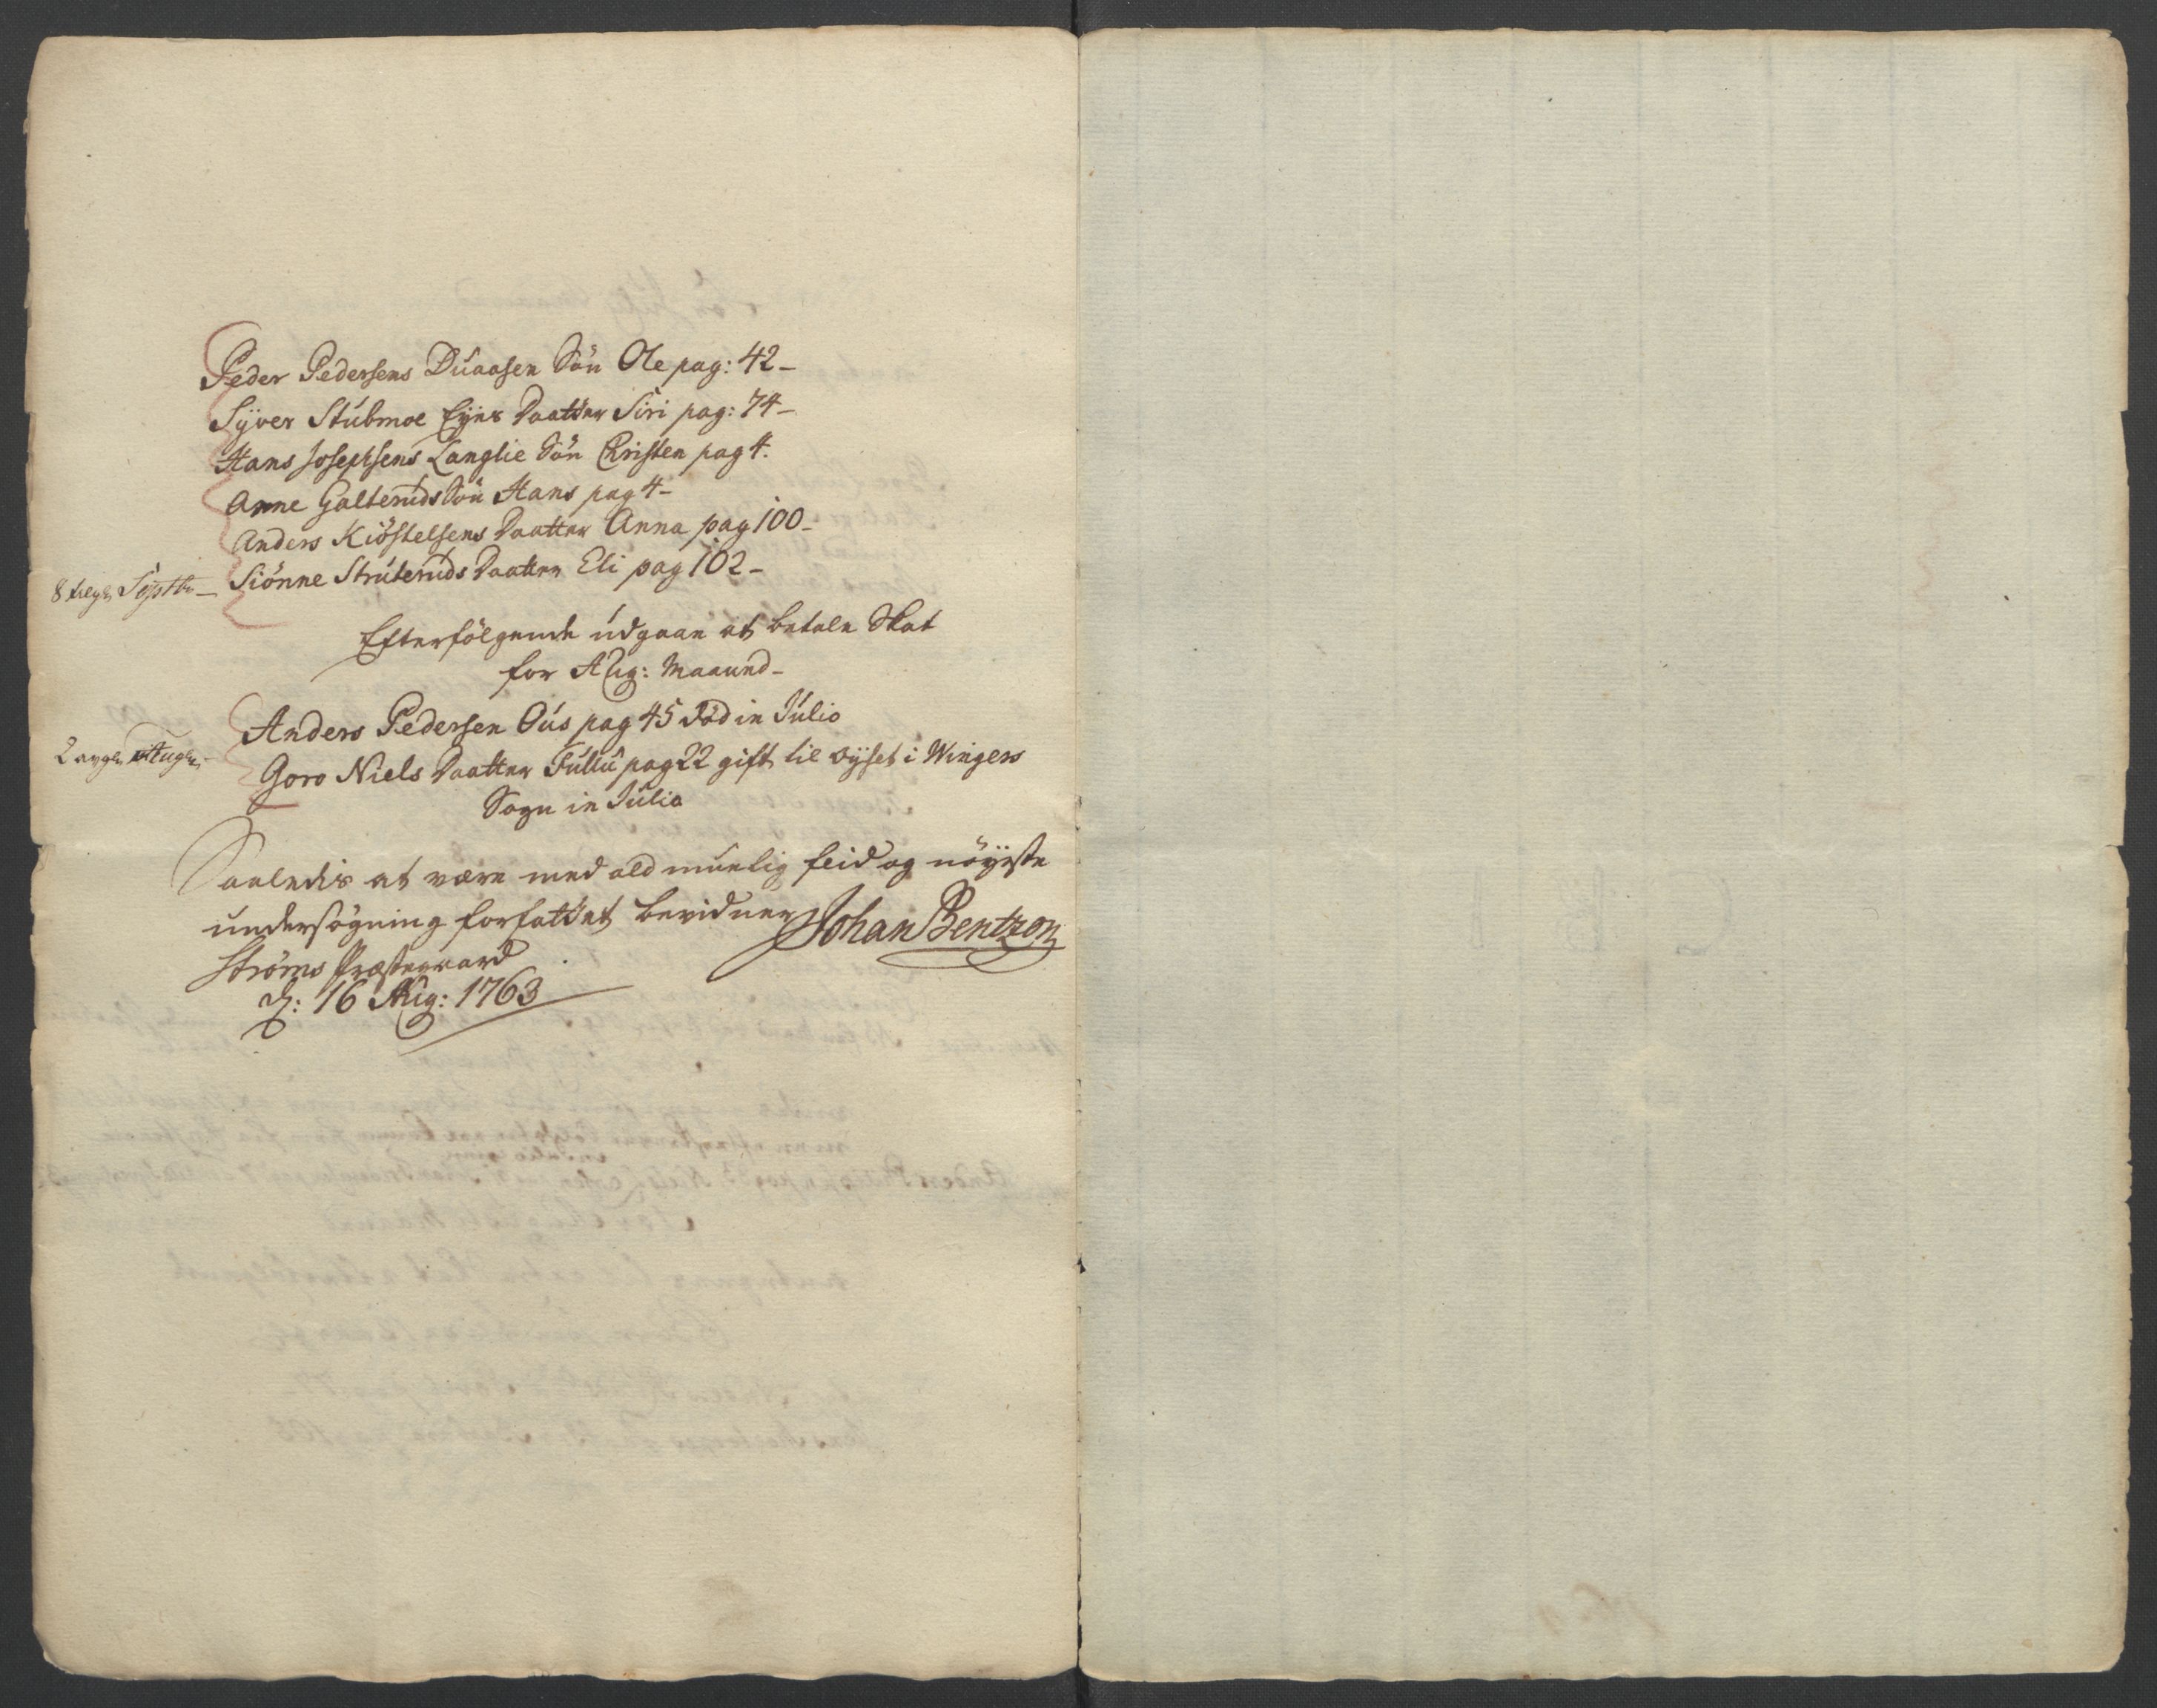 Peder Pedersens Duaasen Sön Ole pag: 42-
Syver Stubmoe Eyes Daatter Siri pag: 74-
Hans Josephsens Langlie Sön Christen pag 4.
Anne Galteruds Sön Hans pag 4-
Anders Kiöstelsens Daatter Anna pag 100-
8 Septbr - Siönne Struteruds Daatter Eli pag 102-
Efterfölgende udgaar at betale Skat
for Aug: Maaned-
Anders Pedersen Ous pag 45 Död in Julio
2 Goro Niels Daatter Fulu pag 22 gift til Øyset i Wingers
Sogn in Julio
Saaledis at være med ald muelig fliid og nöyeste
undersögning forfattet bevidner Johan Bentzon
Ströms Præstegaard
d: 16 Aug: 1763